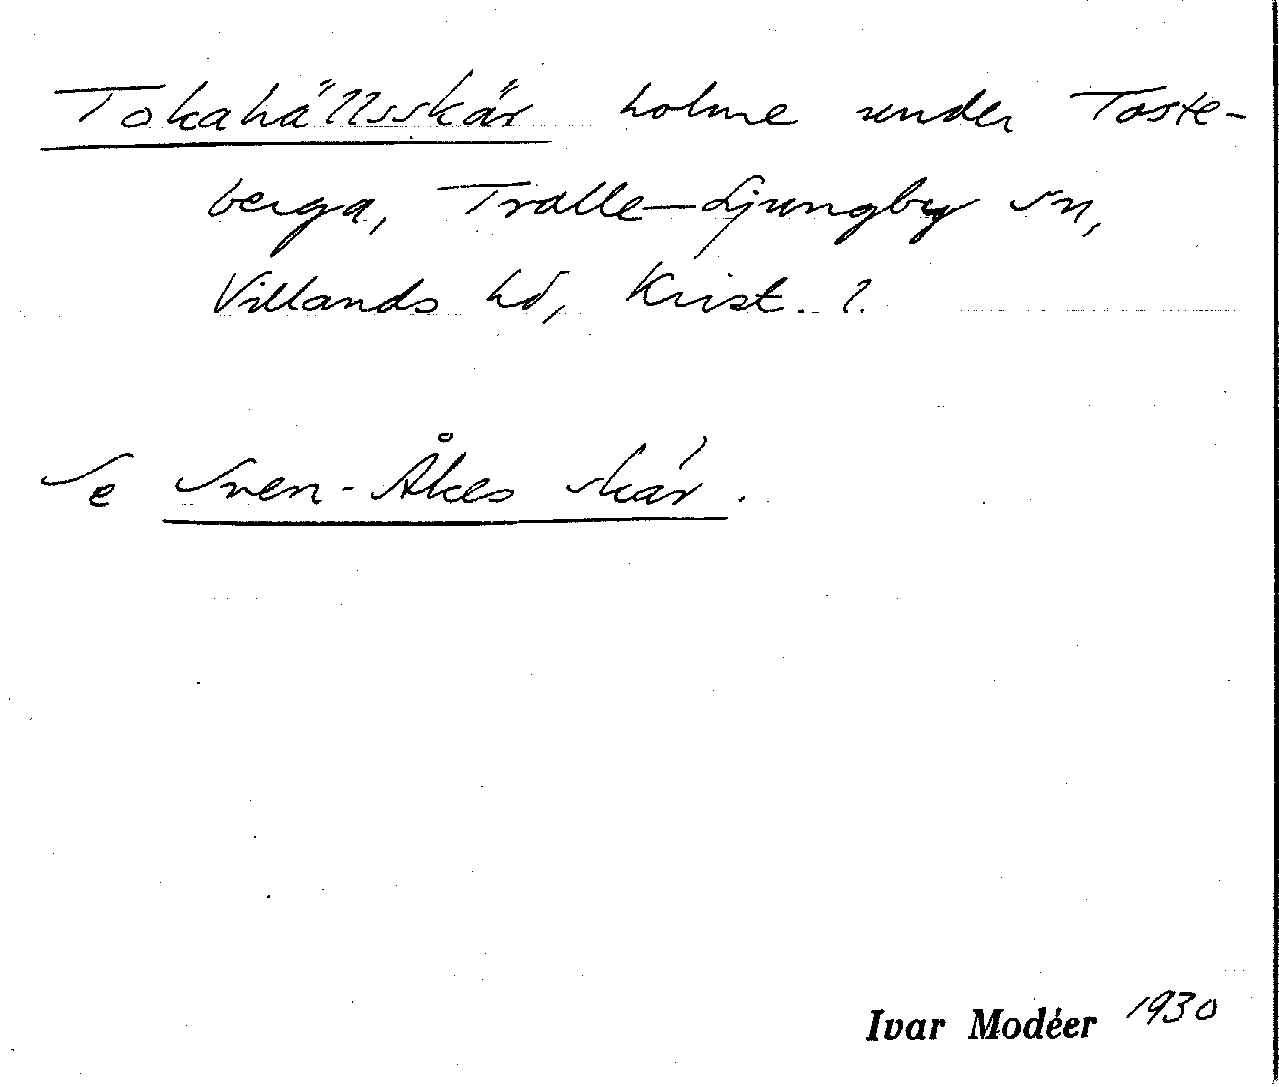 Tokahällsskär holme under Toste-
berga, Tralle-Ljungby sn,
Villands hd, Krist. l.
Se Sven-Åkes skär.
Ivar Modéer 1930